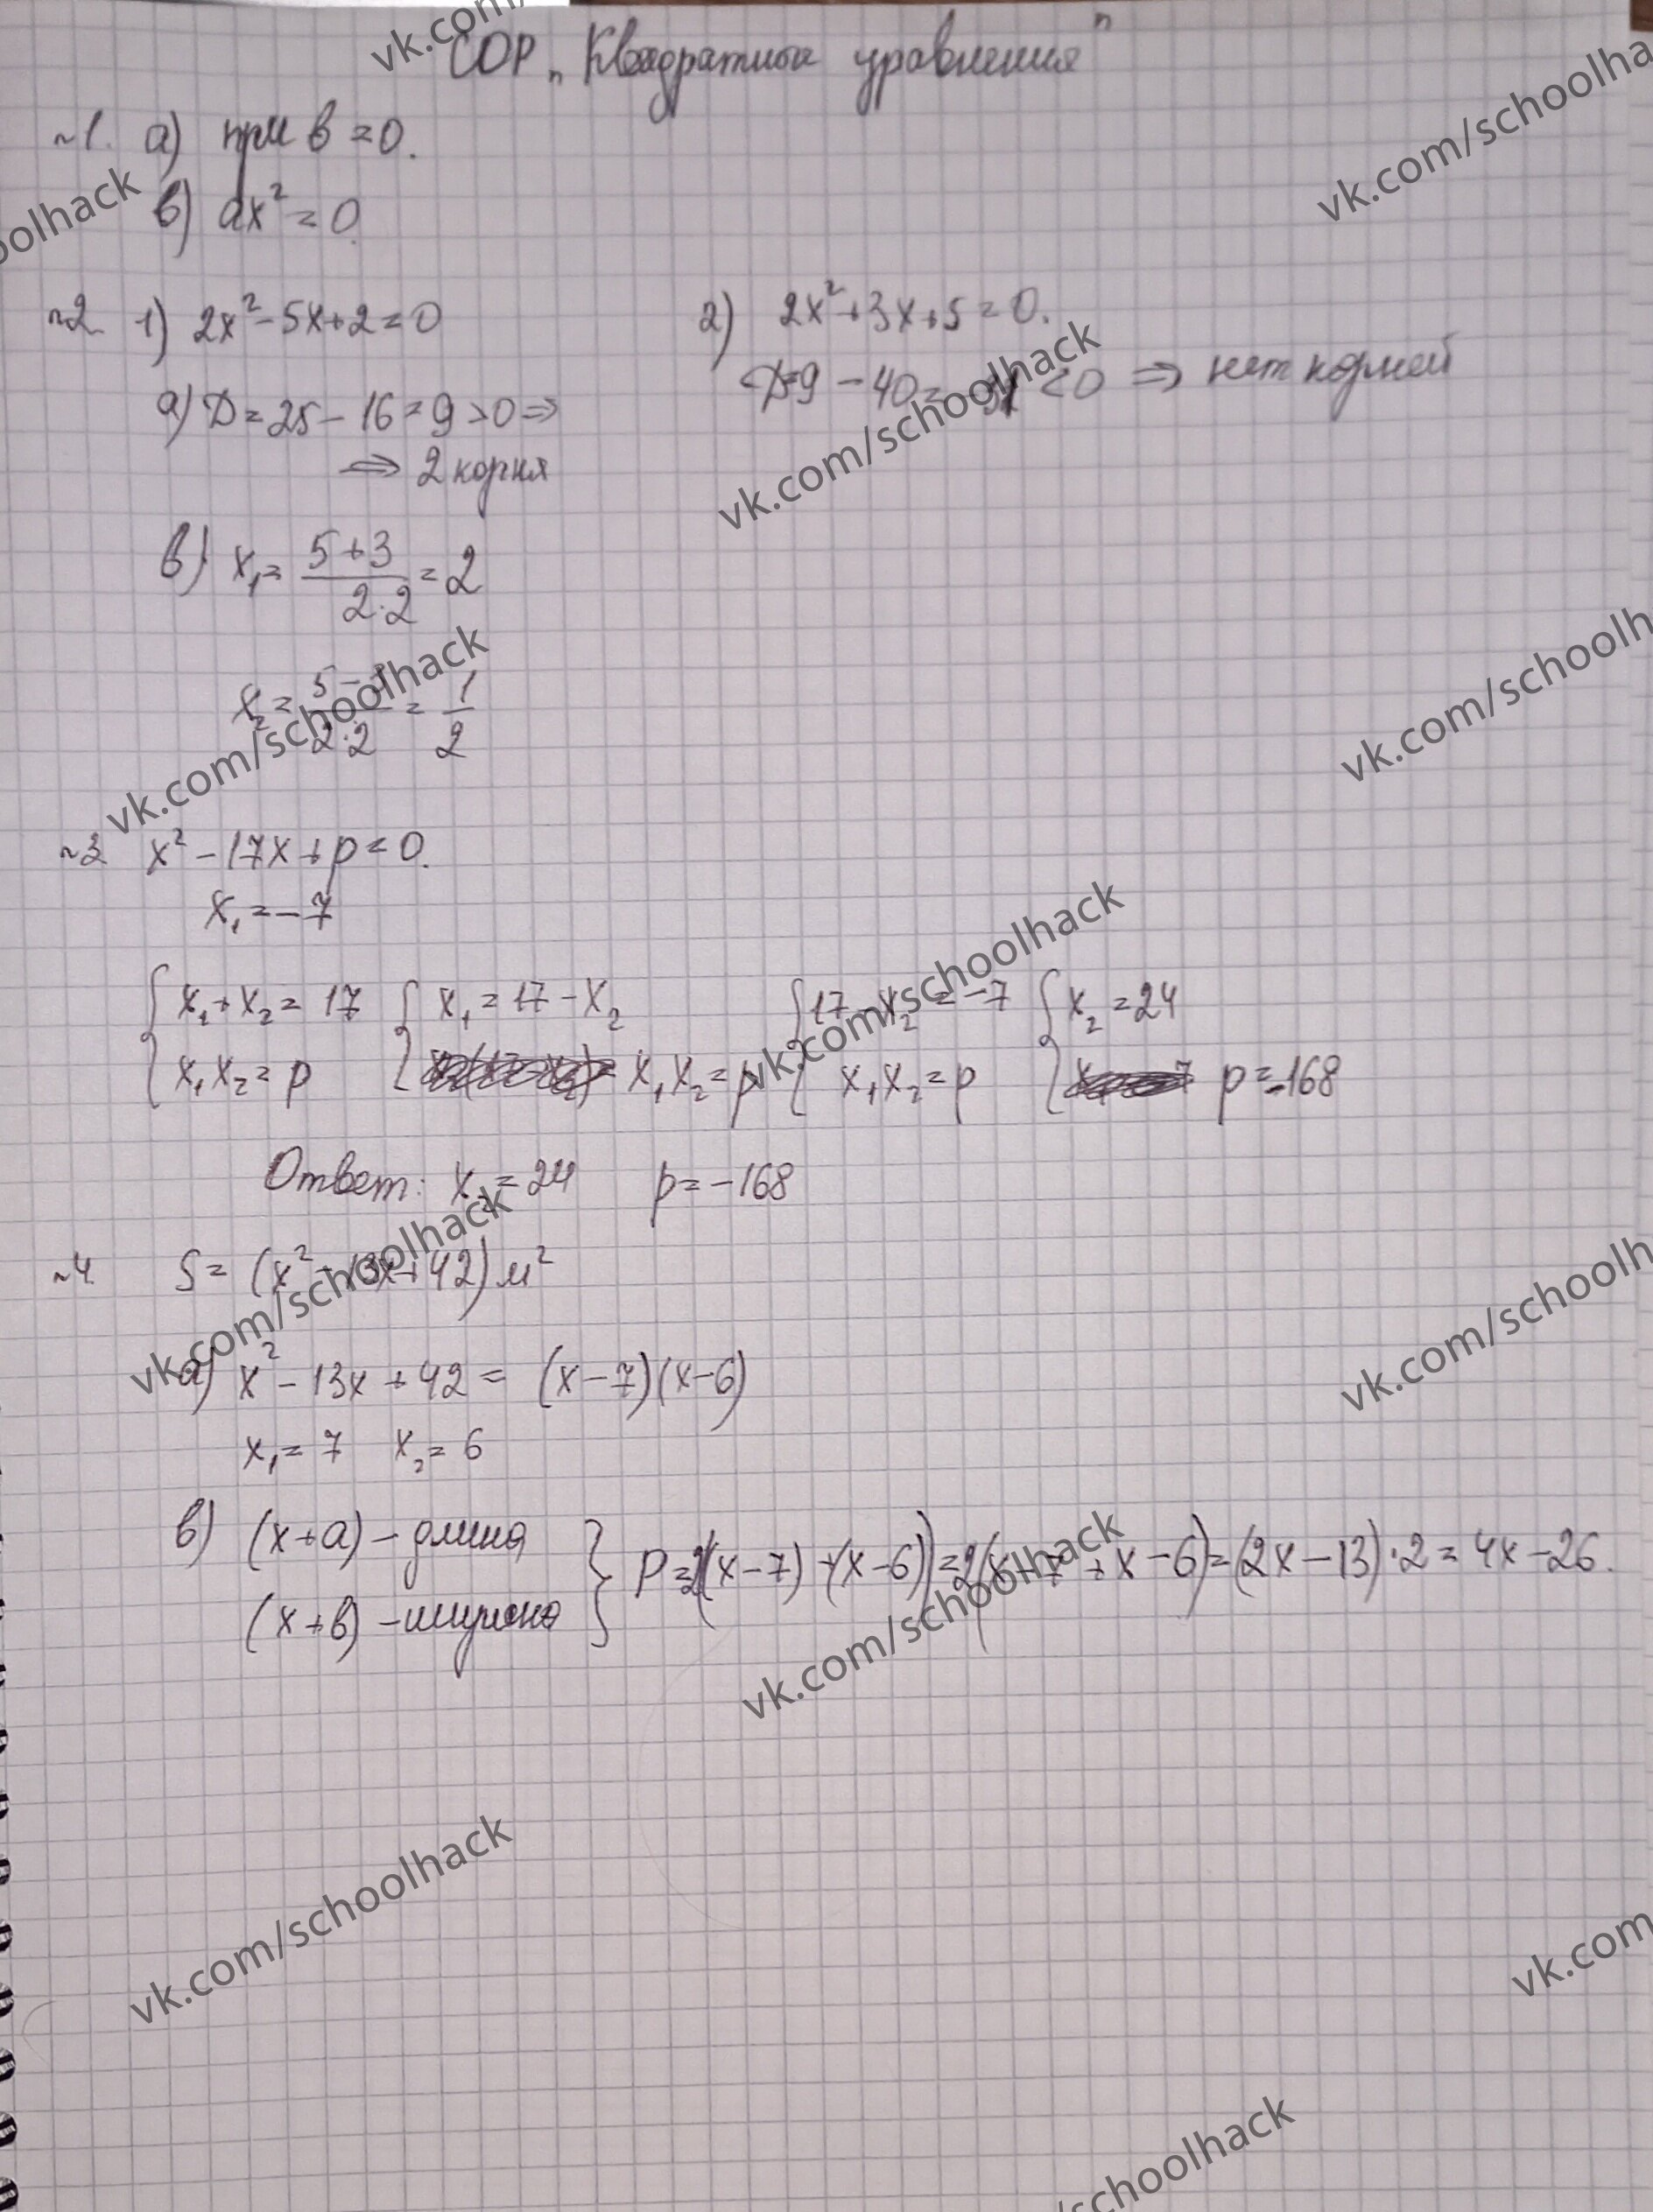 СОР „Квадратные уравнения"
~1. а) при в = 0.
в) ax² = 0
~2 1) 2x² - 5x + 2 = 0
а) D = 25 - 16 = 9 > 0 ⇒
⇒ 2 корня
в) x₁ = (5+3)/(2·2) = 2
x₂ = (5-3)/(2·2) = 1/2
2) 2x² + 3x + 5 = 0.
D = 9 - 40 = -31 < 0 ⇒ нет корней
~3 x² - 17x + p = 0.
x₁ = -7
{ x₁ + x₂ = 17 { x₁ = 17 - x₂ { 17 - x₂ = -7 { x₂ = 24
{ x₁x₂ = p { x₁x₂ = p { x₁x₂ = p { p = -168
Ответ: x₂ = 24 p = -168
~4 S = (x² - 13x + 42) м²
а) x² - 13x + 42 = (x-7)(x-6)
x₁ = 7 x₂ = 6
в) (x+a) - длина
(x+в) - ширина
} P = 2((x-7)+(x-6)) = 2(x-7+x-6) = (2x-13)·2 = 4x-26.
vk.com/schoolhack
vk.com/schoolhack
vk.com/schoolhack
vk.com/schoolhack
vk.com/schoolhack
vk.com/schoolhack
vk.com/schoolhack
vk.com/schoolhack
vk.com/schoolhack